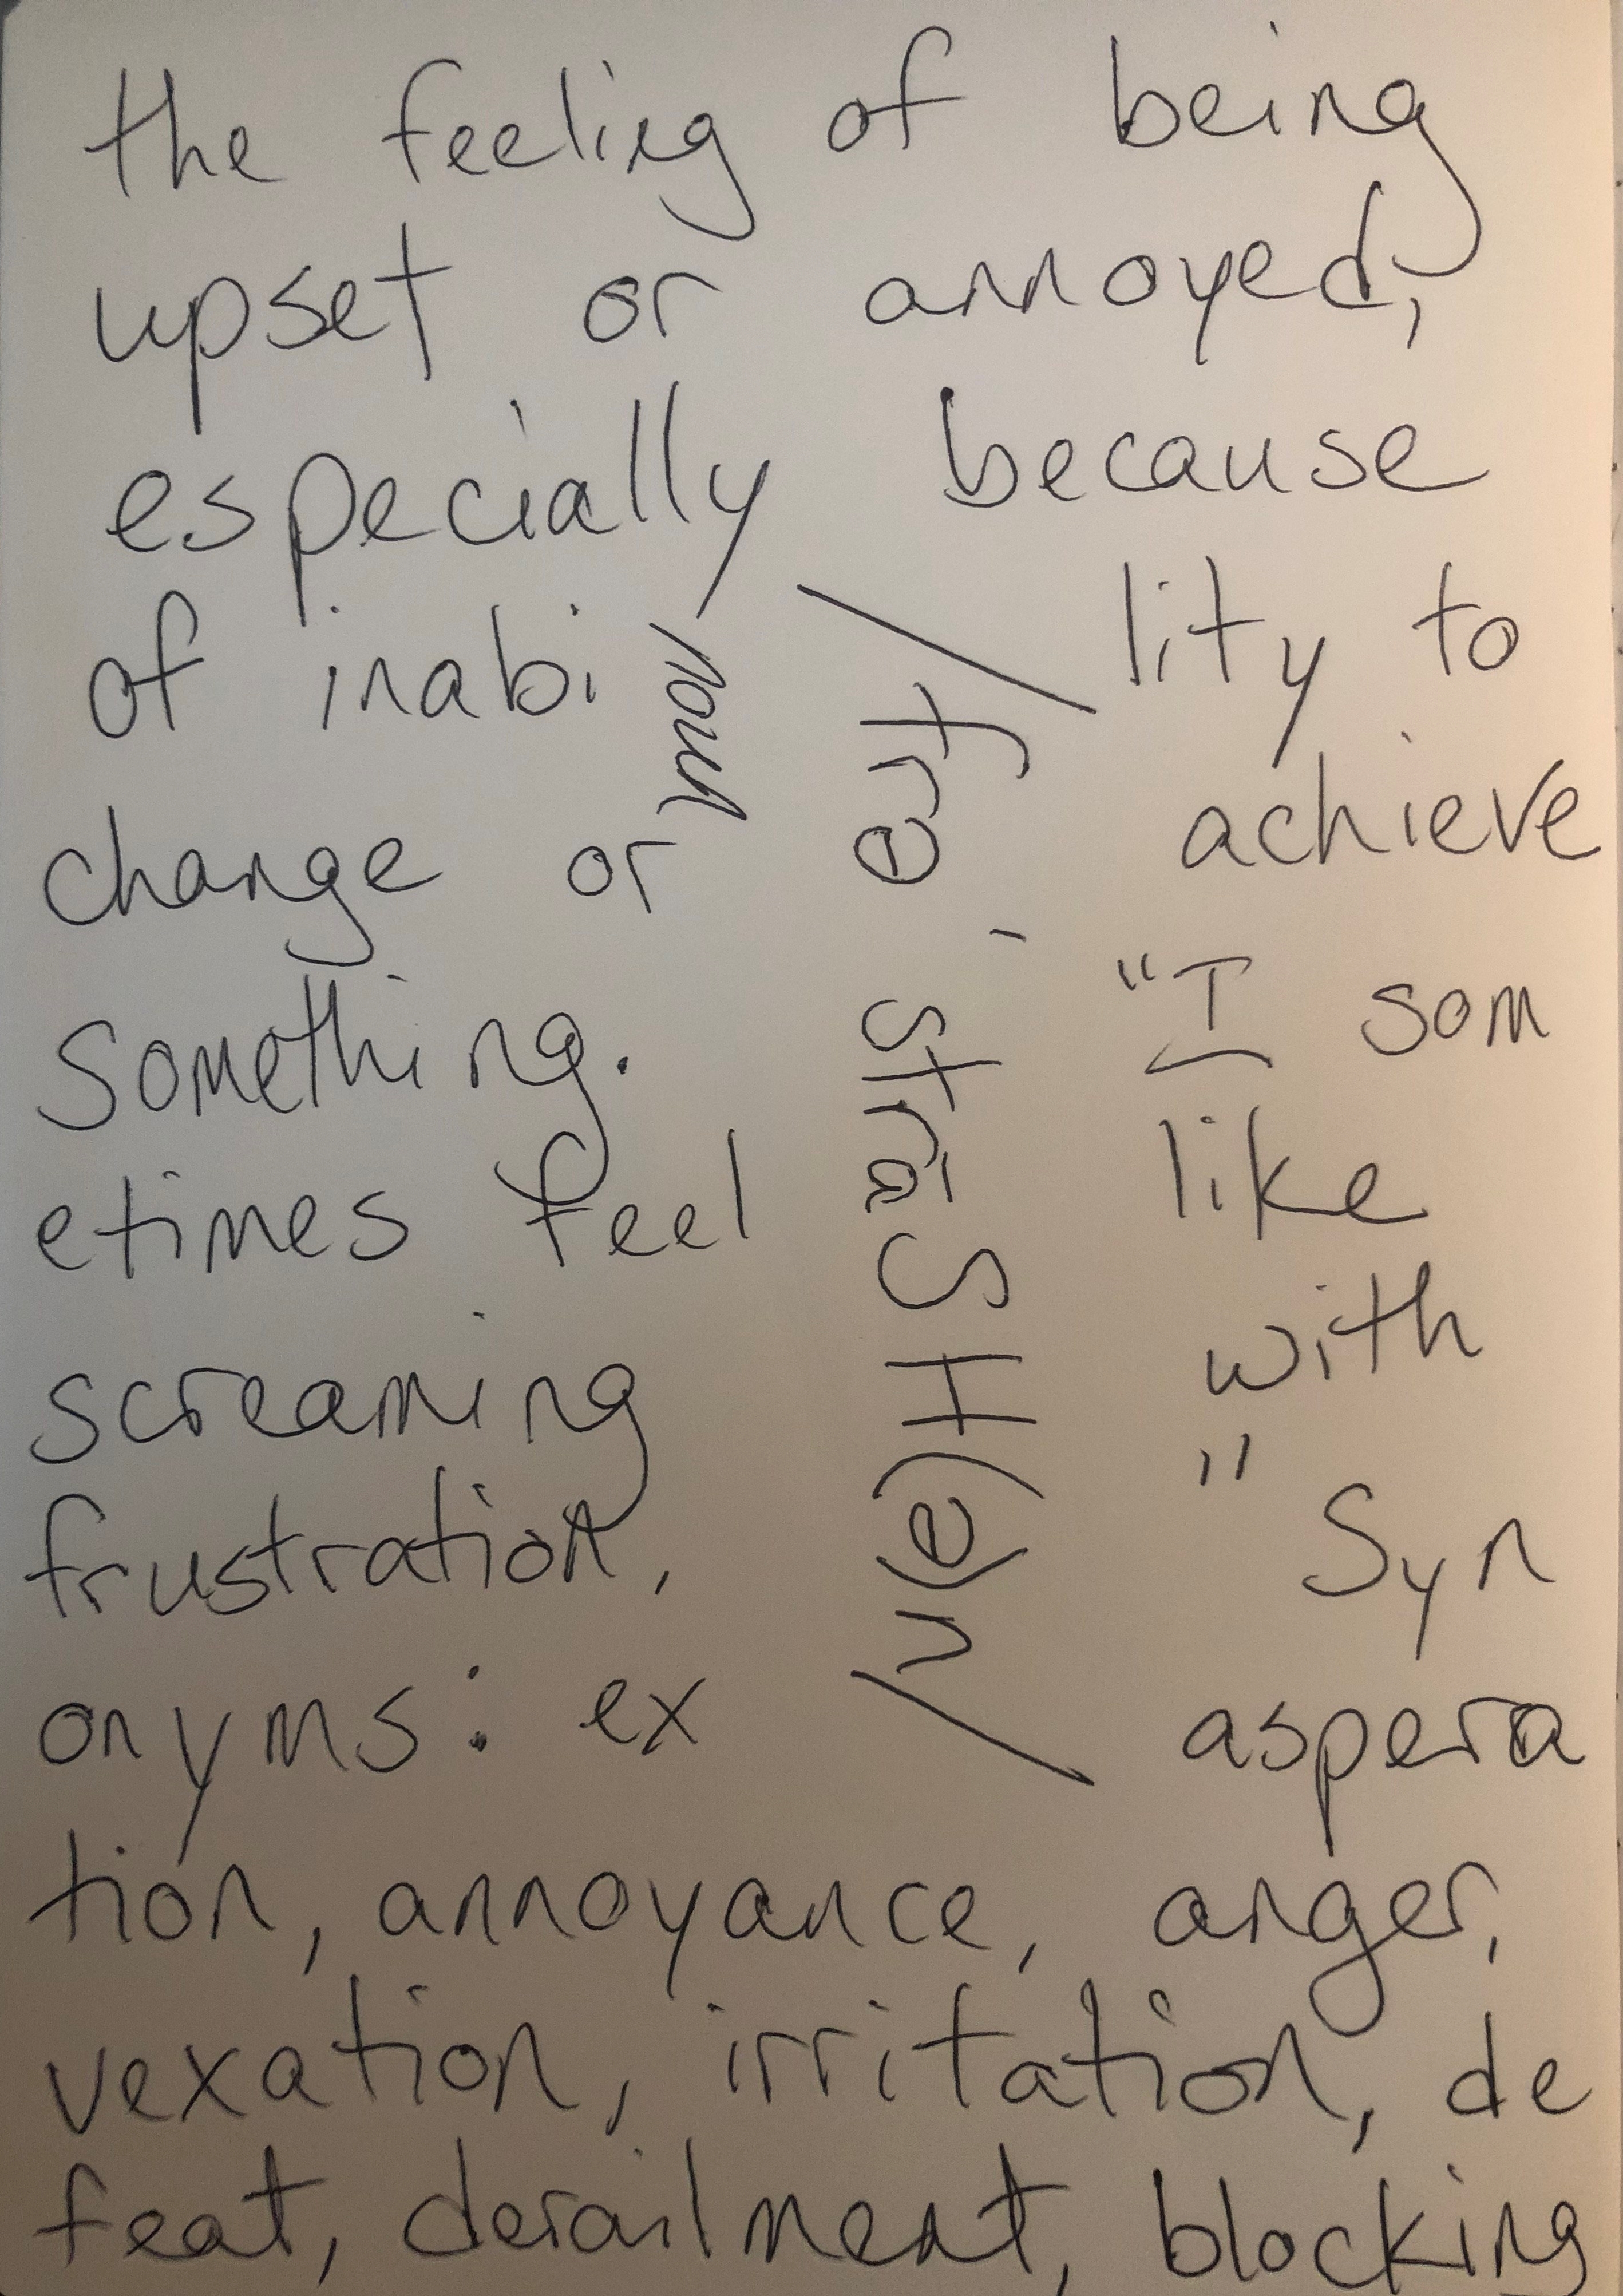 the feeling of being
upset or annoyed,
especially because
of inabi lity to
change or achieve
something. "I som
etimes feel like
screaming with
frustration, " Syn
onyms: ex aspera
tion, annoyance, anger,
vexation, irritation, de
feat, derailment, blocking
noun
/frə ˈstrāSH(ə)n/